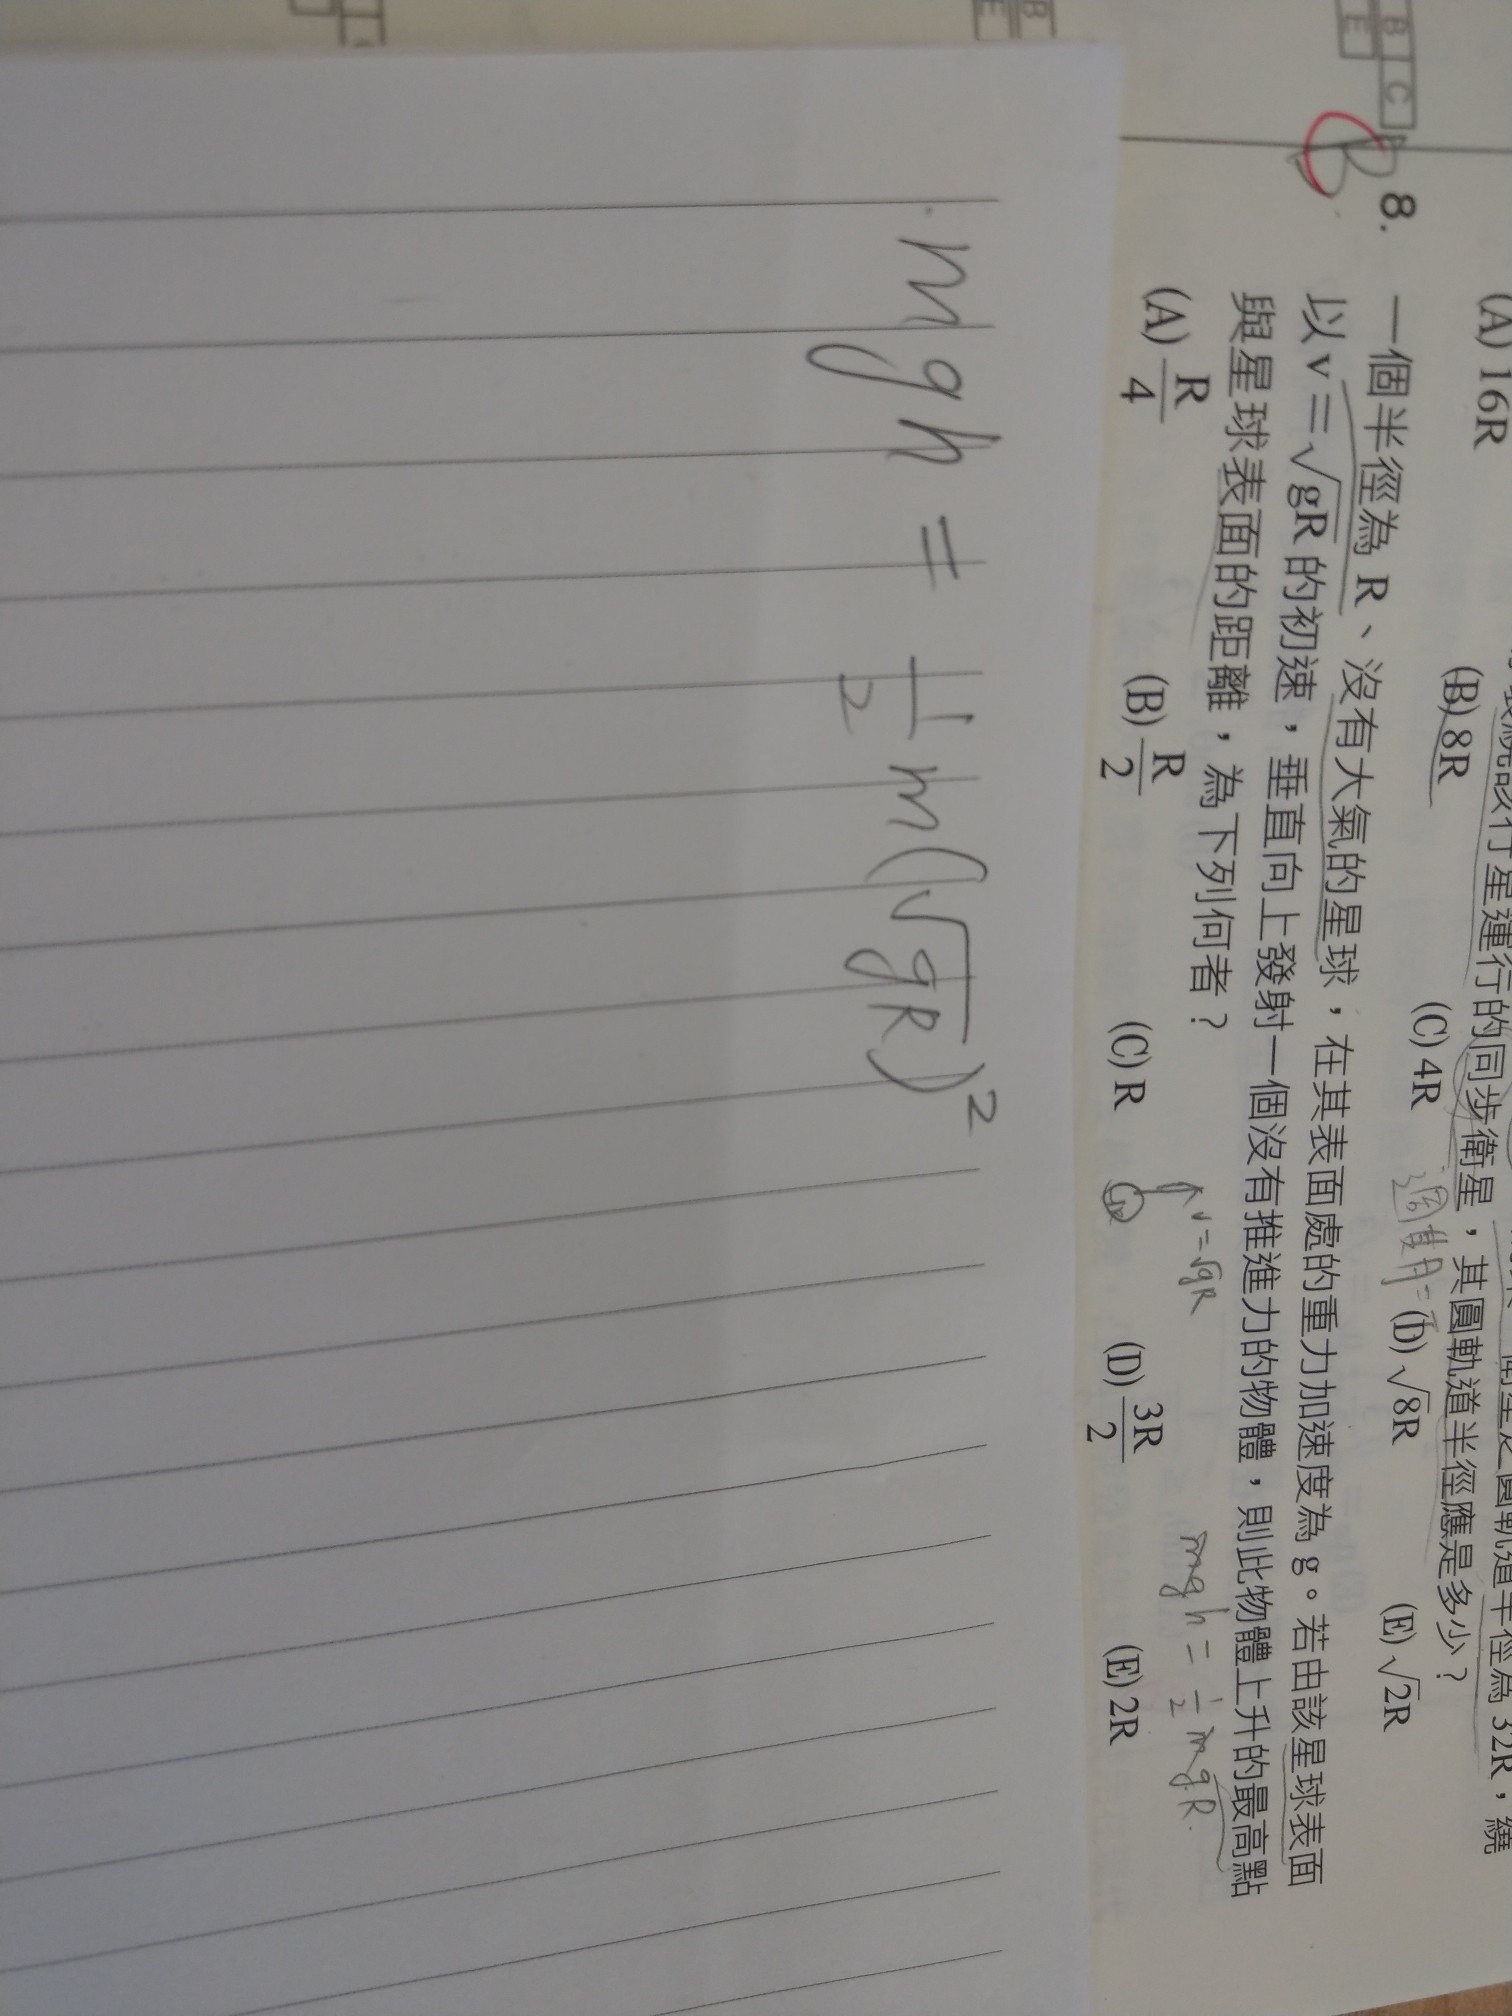 B C
E
B
E
(A) 16R (B) 8R (C) 4R (D) √8R (E) √2R
繞該行星運行的同步衛星，其圓軌道半徑應是多少？
週期=
B 8. 一個半徑為 R、沒有大氣的星球，在其表面處的重力加速度為 g。若由該星球表面
以 v＝√gR 的初速，垂直向上發射一個沒有推進力的物體，則此物體上升的最高點
與星球表面的距離，為下列何者？
v=√gR
mgh = 1/2 mgR.
(A) R/4 (B) R/2 (C) R (D) 3R/2 (E) 2R
mgh = 1/2 m(√gR)²